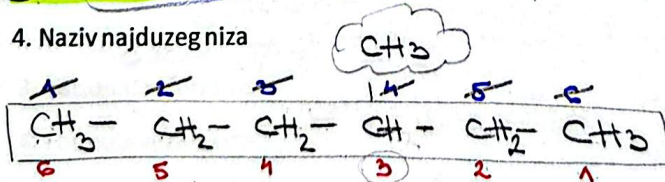 4. Naziv najduzeg niza
CH3
1 2 3 4 5 6
CH3 - CH2 - CH2 - CH - CH2 - CH3
6 5 4 3 2 1